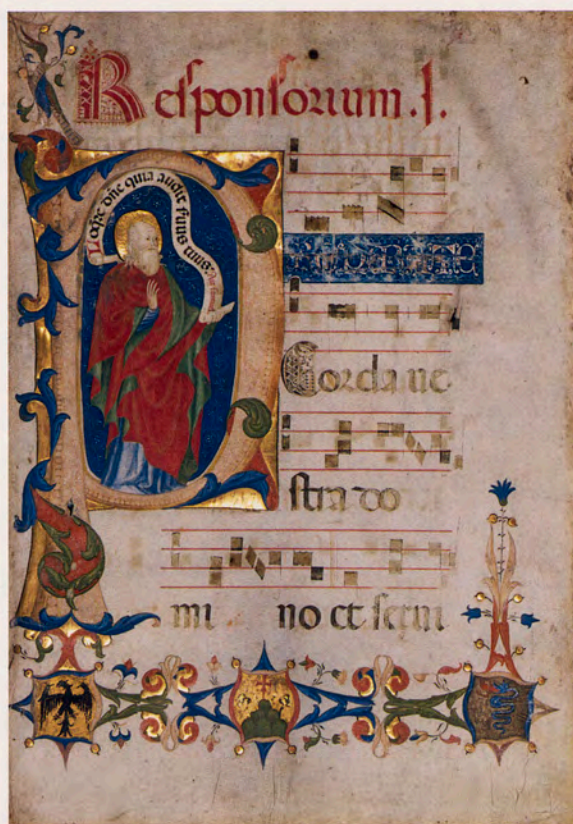 Responsorium .I.
Loqre dñe quia audit seruus tuus
Corda ue
stra do
mi no et serui